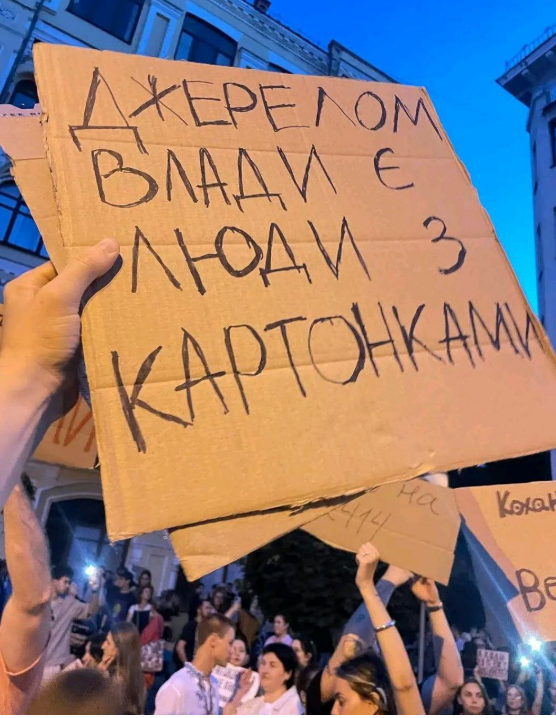 ДЖЕРЕЛОМ
ВЛАДИ Є
ЛЮДИ З
КАРТОНКАМИ
на
12414